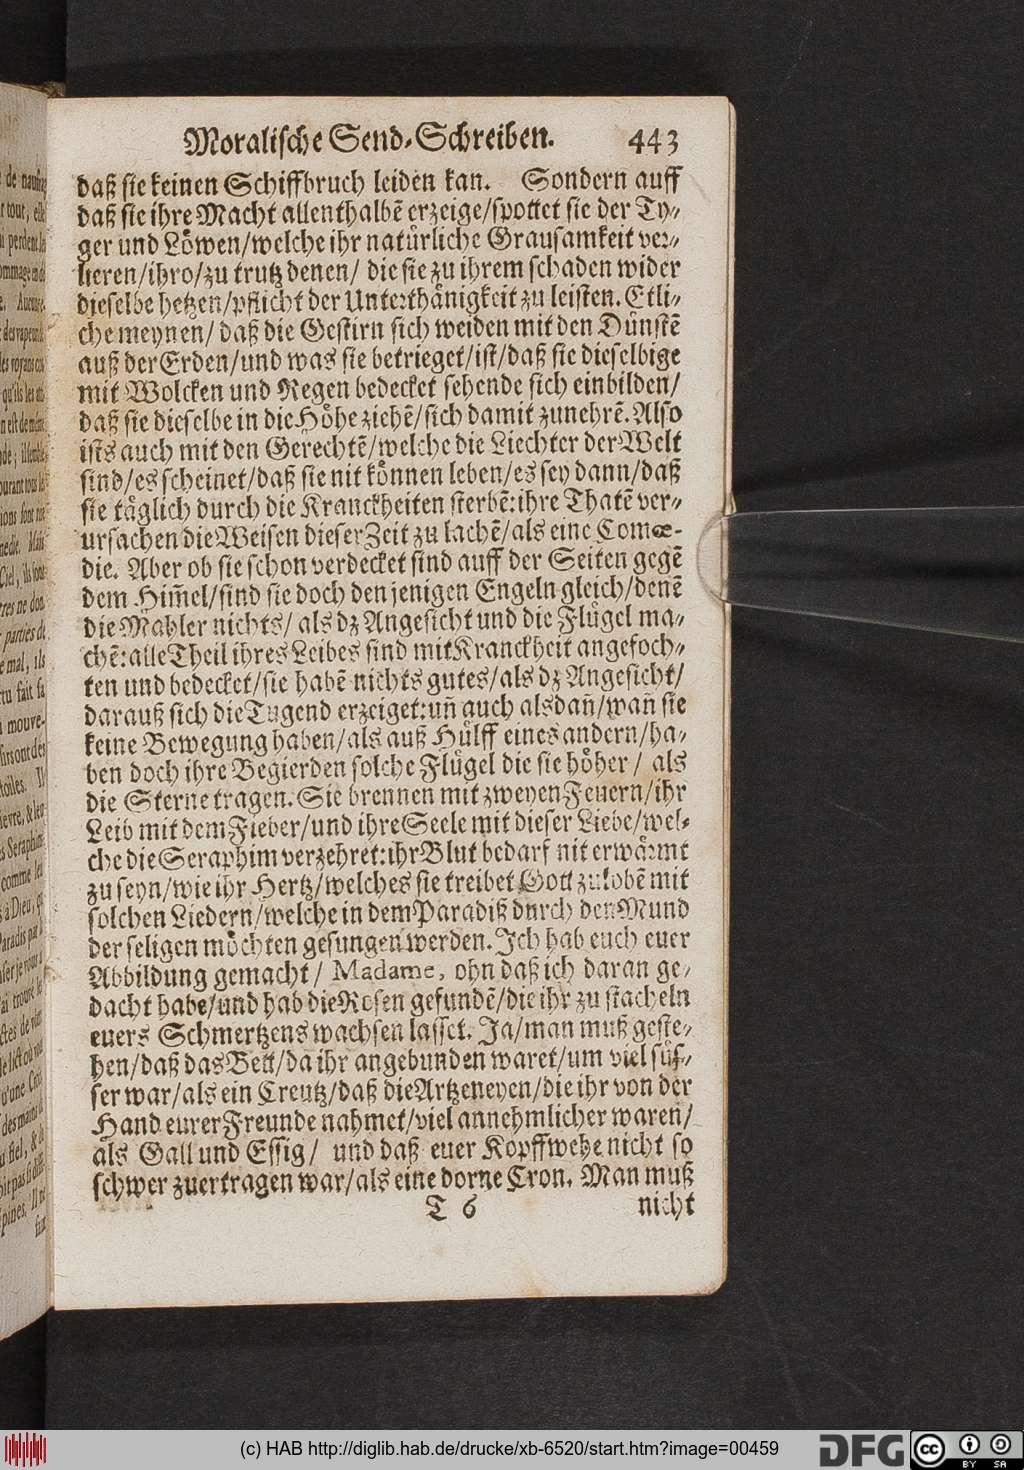 Moralische Send-Schreiben. 443
daß sie keinen Schiffbruch leiden kan. Sondern auff
daß sie ihre Macht allenthalbẽ erzeige/spottet sie der Ty-
ger und Löwen/welche ihr natürliche Grausamkeit ver-
lieren/ihro/zu trutz denen/ die sie zu ihrem schaden wider
dieselbe hetzen/pflicht der Unterthänigkeit zu leisten. Etli-
che meynen/ daß die Gestirn sich weiden mit den Dünstẽ
auß der Erden/und was sie betrieget/ist/daß sie dieselbige
mit Wolcken und Regen bedecket sehende sich einbilden/
daß sie dieselbe in die Höhe ziehẽ/sich damit zunehrẽ. Also
ists auch mit den Gerechtẽ/welche die Liechter der Welt
sind/es scheinet/daß sie nit können leben/es sey dann/daß
sie täglich durch die Kranckheiten sterbẽ: ihre Thatẽ ver-
ursachen die Weisen dieser Zeit zu lachẽ/als eine Comœ-
die. Aber ob sie schon verdecket sind auff der Seiten gegẽ
dem Him̃el/sind sie doch den jenigen Engeln gleich/denẽ
die Mahler nichts/ als dz Angesicht und die Flügel ma-
chẽ: alle Theil ihres Leibes sind mit Kranckheit angefoch-
ten und bedecket/sie habẽ nichts gutes/als dz Angesicht/
darauß sich die Tugend erzeiget: uñ auch alsdañ/wañ sie
keine Bewegung haben/als auß Hülff eines andern/ha-
ben doch ihre Begierden solche Flügel die sie höher/ als
die Sterne tragen. Sie brennen mit zweyen Feuern/ihr
Leib mit dem Fieber/und ihre Seele mit dieser Liebe/wel-
che die Seraphim verzehret: ihr Blut bedarf nit erwärmt
zu seyn/wie ihr Hertz/welches sie treibet Gott zu lobẽ mit
solchen Liedern/welche in dem Paradiß durch den Mund
der seligen möchten gesungen werden. Ich hab euch euer
Abbildung gemacht/ Madame, ohn daß ich daran ge-
dacht habe/und hab die Rosen gefundẽ/die ihr zu stacheln
euers Schmertzens wachsen lasset. Ja/man muß geste-
hen/daß das Bett/da ihr angebunden waret/um viel süs-
ser war/als ein Creutz/daß die Artzeneyen/die ihr von der
Hand eurer Freunde nahmet/viel annehmlicher waren/
als Gall und Essig/ und daß euer Kopffwehe nicht so
schwer zuertragen war/als eine dorne Cron. Man muß
T 6 nicht
(c) HAB http://diglib.hab.de/drucke/xb-6520/start.htm?image=00459
DFG
cc BY SA